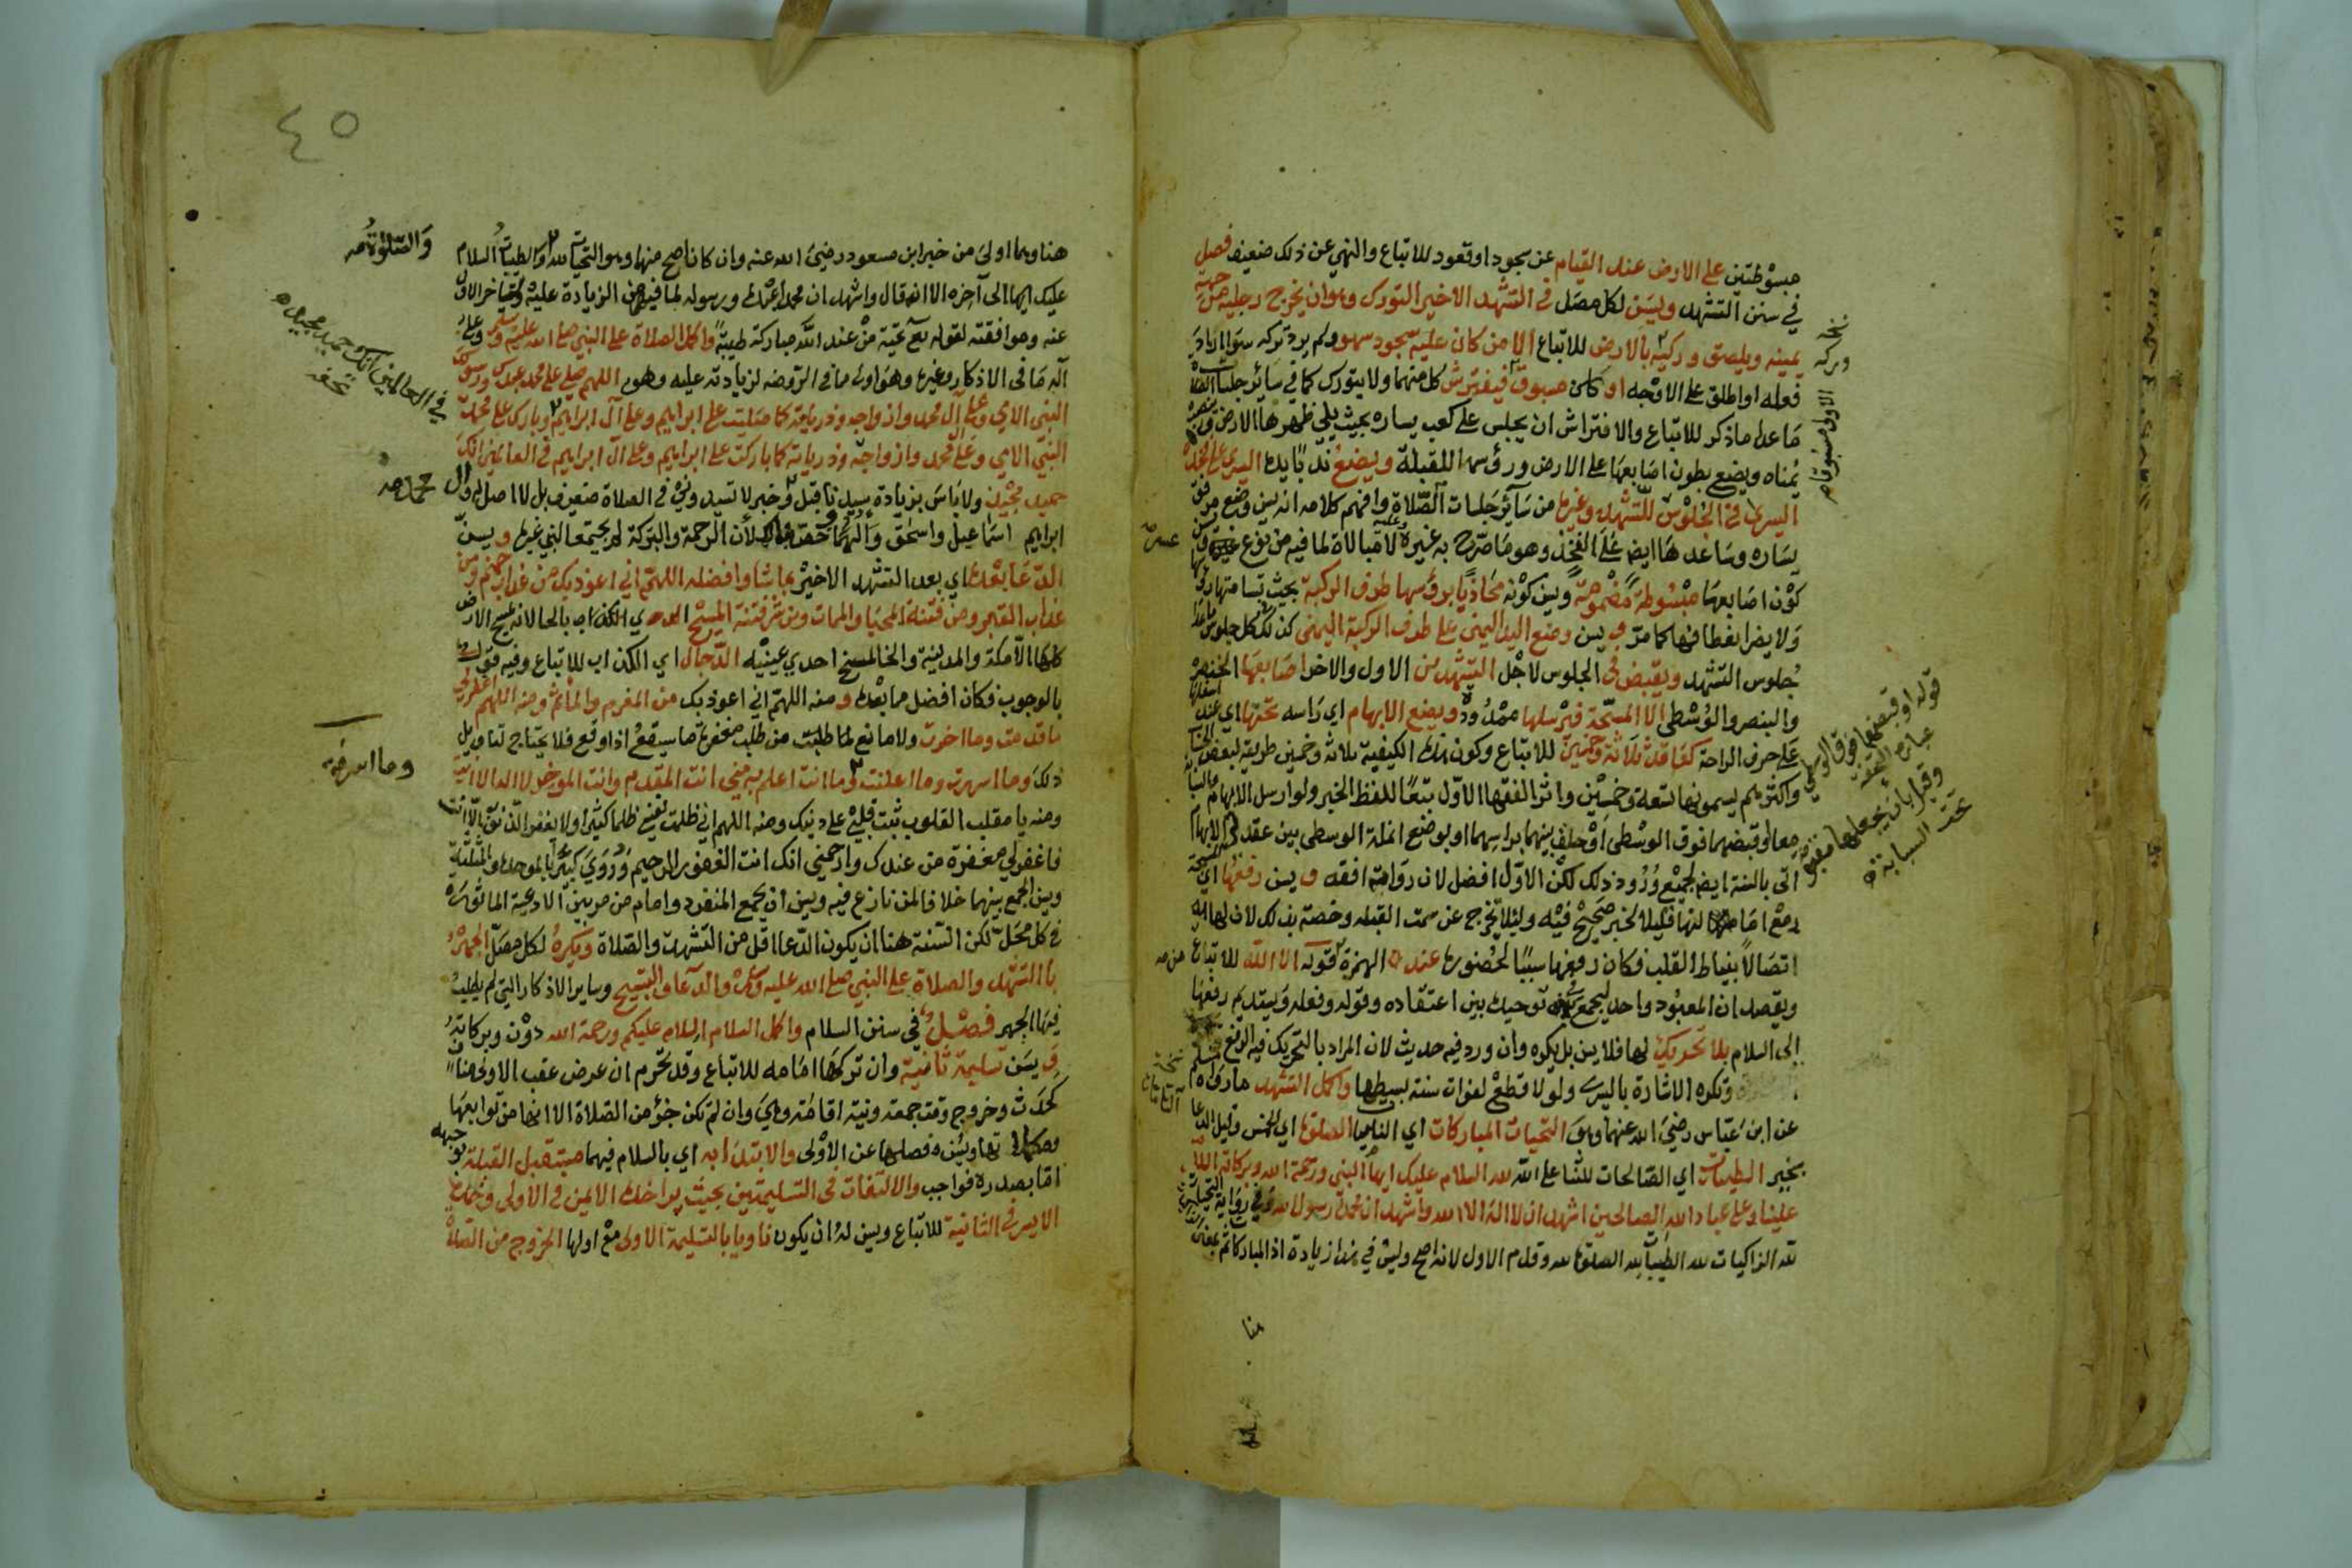 مبسوطتين على الارض عند القيام عن سجود او قعود للاتباع والنهي عن ذلك ضعيف فصل
في سنن التشهد وليسن لكل مصل في التشهد الاخير التورك وهو ان يخرج رجليه من جهة
يمينه ويلصق وركيه بالارض للاتباع الا من كان عليه سجود سهو ولم يرد تركه سواء اراد
فعله او اطلق على الاوجه او كان مسبوقا فيفترش كل منهما ولا يتورك كما في سائر جلسات الصلاة
ما عدا ما ذكر للاتباع والافتراش ان يجلس على كعب يساره بحيث يلي ظهرها الارض وينصب
يمناه ويضع بطون اصابعها على الارض ورؤسها للقبلة ويضع ندبا يده اليسرى على فخذه
اليسرى في الجلوس للتشهد وغيره من سائر جلسات الصلاة وافهم كلامه انه يسن وضع مرفق
يساره وساعدها ايضا على الفخذ وهو ما صرح به غيره ولا مبالاة لما فيه من نوع عسر ويسن
كون اصابعها مبسوطة مضمومة ويسن كونه محاذيا برؤسها طرف الركبة بحيث تسامتها رؤسها
ولا يضر انعطافها كما مر ويسن وضع اليد اليمنى على طرف الركبة اليمنى كذلك كل جلوس ما عدا
جلوس التشهد ويقبض في الجلوس لاجل التشهدين الاول والاخر اصابعها الخنصر
والبنصر والوسطى الا المسبحة فيرسلها ممدودة ويضع الابهام اي راسه تحتها اي عند اسفلها
على حرف الراحة كعاقد ثلاثة وخمسين للاتباع وكون هذه الكيفية ثلاثة وخمسين طريقة لبعض الحساب
واكثرهم يسمونها تسعة وخمسين واثر الفقها الاول تبعا للفظ الخبر ولو ارسل الابهام والسبابة
معا او قبضهما فوق الوسطى او حلق بينهما براسهما او بوضع انملة الوسطى بين عقدتي الابهام
اتى بالسنة ايضا لجميع ورود ذلك لكن الاول افضل لان رواته افقه ويسن رفعها اي المسبحة
مع امالتها قليلا لخبر صحيح فيه ولئلا تخرج عن سمت القبلة وخصت بذلك لان لها
اتصالا بنياط القلب فكان رفعها سببا لحضوره عند الهمزة من قوله الا الله للاتباع
ويقصد ان المعبود واحد ليجمع في توحيده بين اعتقاده وقوله وفعله ويستديم رفعها
الى السلام بلا تحريك لها فلا يسن بل يكره وان ورد فيه حديث لان المراد بالتحريك فيه الرفع
وتكره الاشارة باليسرى ولو لاقطع لفوات سنة بسطها واكمل التشهد ما رواه مسلم
عن ابن عباس رضي الله عنهما وهو التحيات المباركات اي الناميات الصلوات اي الخمس وقيل الدعا
بخير الطيبات اي الصالحات للثنا على الله لله السلام عليك ايها النبي ورحمة الله وبركاته السلام
علينا وعلى عباد الله الصالحين اشهد ان لا اله الا الله واشهد ان محمدا رسول الله وفي رواية التحيات
لله الزاكيات لله الطيبات لله الصلوات لله وقدم الاول لانه اصح وليس في هذا زيادة اذ المباركات ثم بمعنى
نسخة
وركه
قوله او قبضهما فوق الوسطى
عبارة التحفة
وقيل بان يجعلها مقبوضة
تحت السبابة
عسر صح
من صح
نسخة
هنا
٤٥
هنا وهما اولى من خبر ابن مسعود رضي الله عنه وان كان اصح منها وهو التحيات لله والطيبات السلام
عليك ايها الى آخره الا انه قال واشهد ان محمدا عبده ورسوله لما فيهما من الزيادة عليه ولتاخر الاول
عنه وموافقته لقوله تعالى تحية من عند الله مباركة طيبة واكمل الصلاة على النبي صلى الله عليه وسلم وعلى
آله ما في الاذكار وغيره وهو اولى مما في الروضة لزيادته عليه وهو اللهم صل على محمد عبدك ورسولك
النبي الامي وعلى آل محمد وازواجه وذرياته كما صليت على ابراهيم وعلى آل ابراهيم وبارك على محمد
النبي الامي وعلى آل محمد وازواجه وذرياته كما باركت على ابراهيم وعلى آل ابراهيم في العالمين انك
حميد مجيد ولا باس بزيادة سيدنا قبل محمد وخبر لا تسيدوني في الصلاة ضعيف بل لا اصل له وآل
ابراهيم اسماعيل واسحق وآلهما وخصوا بذلك لان الرحمة والبركة لم يجتمعا لنبي غيره ويسن
الدعا بعده اي بعد التشهد الاخير بما شا وافضله اللهم اني اعوذ بك من عذاب جهنم ومن
عذاب القبر ومن فتنة المحيا والممات ومن شر فتنة المسيح
كلها الا مكة والمدينة وبالخا لمسخ احدى عينيه الدجال اي الكذاب للاتباع وفيه قول
بالوجوب فكان افضل مما بعده ومنه اللهم اني اعوذ بك من المغرم والماثم ومنه اللهم اغفر لي
ما قدمت وما اخرت ولا مانع لما طلبت من طلب مغفرة ما سيقع اذا وقع فلا يحتاج لتاويل
ذلك وما اسررت وما اعلنت وما انت اعلم به مني انت المقدم وانت المؤخر لا اله الا انت
ومنه يا مقلب القلوب ثبت قلبي على دينك ومنه اللهم اني ظلمت نفسي ظلما كثيرا ولا يغفر الذنوب الا انت
فاغفر لي مغفرة من عندك وارحمني انك انت الغفور الرحيم وروي كبيرا بالموحدة والمثلثة
ويسن الجمع بينهما خلافا لمن نازع فيه ويسن ان يجمع المنفرد وامام من مر بين الادعية الماثورة
في كل محل لكن السنة هنا ان يكون الدعا اقل من التشهد والصلاة ويكره لكل مصل الجهر
بالتشهد والصلاة على النبي صلى الله عليه وسلم والدعا والتسبيح وساير الاذكار التي لم يطلب
فيها الجهر فصل في سنن السلام واكمل السلام السلام عليكم ورحمة الله دون وبركاته
ويسن تسليمة ثانية وان تركها امامه للاتباع وقد تحرم ان عرض عقب الاولى مناف
كحدث وخروج وقت جمعة ونية اقامة وهي وان لم تكن جزؤ من الصلاة الا انها من توابعها
ومكملاتها ويسن فصلها عن الاولى والابتداء به اي بالسلام فيهما مستقبل القبلة بوجهه
اما بصدره فواجب والالتفات في التسليمتين بحيث يرى خده الايمن في الاولى وخده
الايسر في الثانية للاتباع ويسن له ان يكون ناويا بالتسليمة الاولى مع اولها الخروج من الصلاة
والصلوات صح
في العالمين انك حميد مجيد
تحفه
محمد صح
وما اسرفت